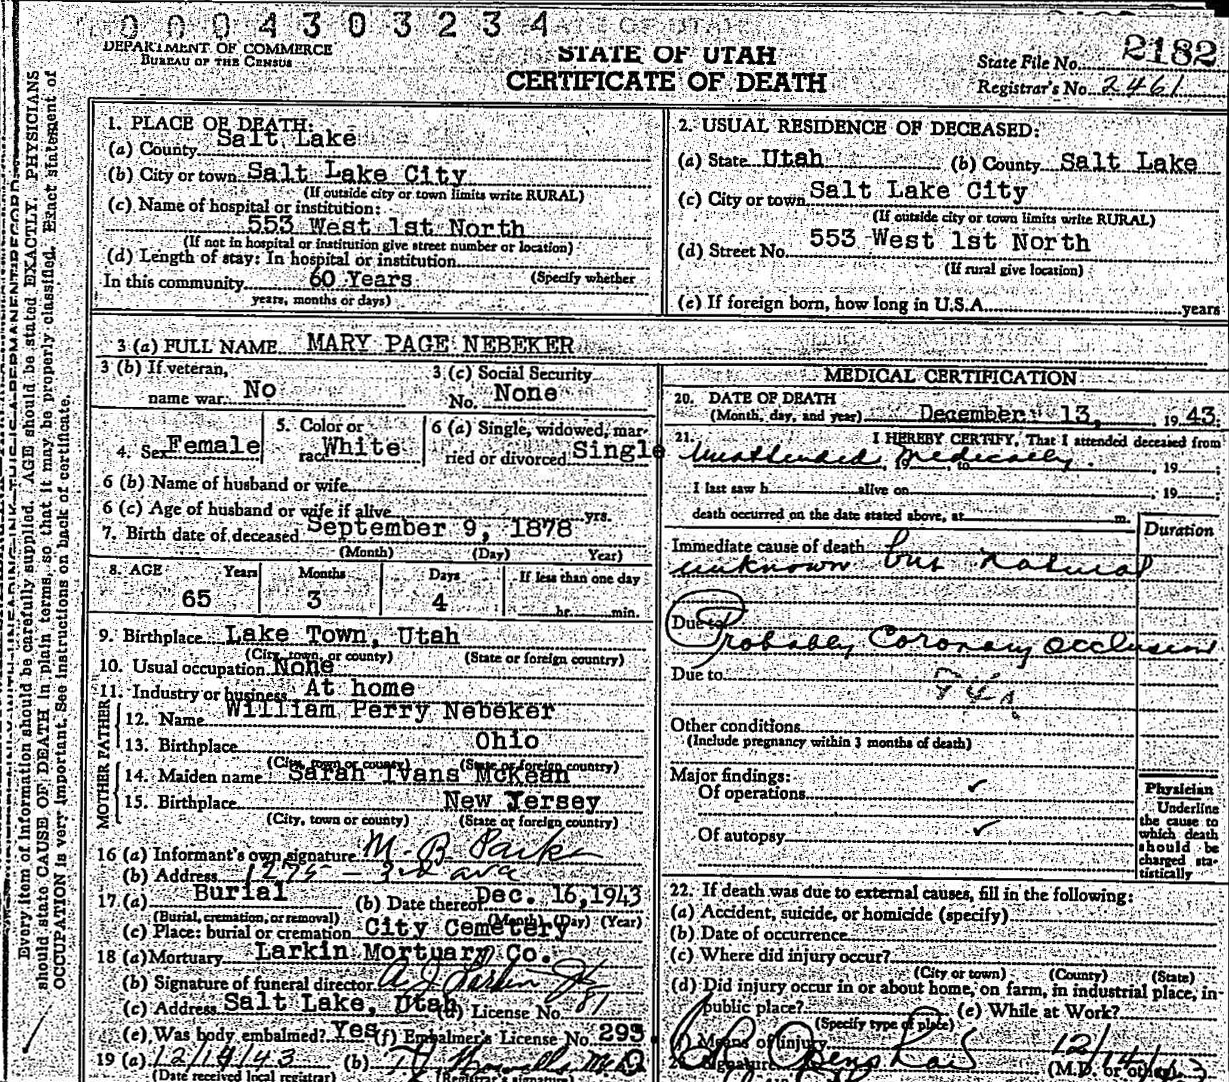 0004303234
DEPARTMENT OF COMMERCE
BUREAU OF THE CENSUS
STATE OF UTAH
CERTIFICATE OF DEATH
State File No. 2182
Registrar's No. 2461
Every item of information should be carefully supplied. AGE should be stated EXACTLY. PHYSICIANS
should state CAUSE OF DEATH in plain terms, so that it may be properly classified. Exact statement of
OCCUPATION is very important. See instructions on back of certificate.
1. PLACE OF DEATH:
(a) County Salt Lake
(b) City or town Salt Lake City
(If outside city or town limits write RURAL)
(c) Name of hospital or institution:
553 West 1st North
(If not in hospital or institution give street number or location)
(d) Length of stay: In hospital or institution
In this community 60 Years (Specify whether
years, months or days)
2. USUAL RESIDENCE OF DECEASED:
(a) State Utah (b) County Salt Lake
(c) City or town Salt Lake City
(If outside city or town limits write RURAL)
(d) Street No. 553 West 1st North
(If rural give location)
(e) If foreign born, how long in U.S.A. years
3 (a) FULL NAME MARY PAGE NEBEKER
3 (b) If veteran,
name war No
3 (c) Social Security
No. None
4. Sex Female
5. Color or
race White
6 (a) Single, widowed, mar-
ried or divorced Single
6 (b) Name of husband or wife
6 (c) Age of husband or wife if alive yrs.
7. Birth date of deceased September 9, 1878
(Month) (Day) Year)
8. AGE Years Months Days If less than one day
65 3 4 hr. min.
9. Birthplace Lake Town, Utah
(City, town, or county) (State or foreign country)
10. Usual occupation None
11. Industry or business At home
FATHER
12. Name William Perry Nebeker
13. Birthplace Ohio
(City, town or county) (State or foreign country)
MOTHER
14. Maiden name Sarah Ivans McKean
15. Birthplace New Jersey
(City, town or county) (State or foreign country)
16 (a) Informant's own signature M. B. Park
(b) Address 1275 - 3rd ave
17 (a) Burial (b) Date thereof Dec. 16, 1943
(Burial, cremation, or removal) (Month) (Day) (Year)
(c) Place: burial or cremation City Cemetery
18 (a) Mortuary Larkin Mortuary Co.
(b) Signature of funeral director A. J. Larkin Jr
(c) Address Salt Lake, Utah (d) License No. 81
(e) Was body embalmed? Yes (f) Embalmer's License No. 295
19 (a) 12/14/43 (b)
(Date received local registrar) (Registrar's signature)
MEDICAL CERTIFICATION
20. DATE OF DEATH
(Month, day, and year) December 13, 1943.
21. I HEREBY CERTIFY, That I attended deceased from
Unattended, 19 , to Medically , 19 ;
I last saw h alive on , 19 ;
death occurred on the date stated above, at m.
Duration
Immediate cause of death but
unknown but natural
Due to
Probably Coronary occlusion
Due to 94A
Other conditions
(Include pregnancy within 3 months of death)
Major findings:
Of operations ✓
Of autopsy ✓
Physician
Underline
the cause to
which death
should be
charged sta-
tistically
22. If death was due to external causes, fill in the following:
(a) Accident, suicide, or homicide (specify)
(b) Date of occurrence
(c) Where did injury occur?
(City or town) (County) (State)
(d) Did injury occur in or about home, on farm, in industrial place, in
public place? (e) While at Work?
(Specify type of place)
(f) Means of injury
Signature 12/14/43
(M.D. or other)